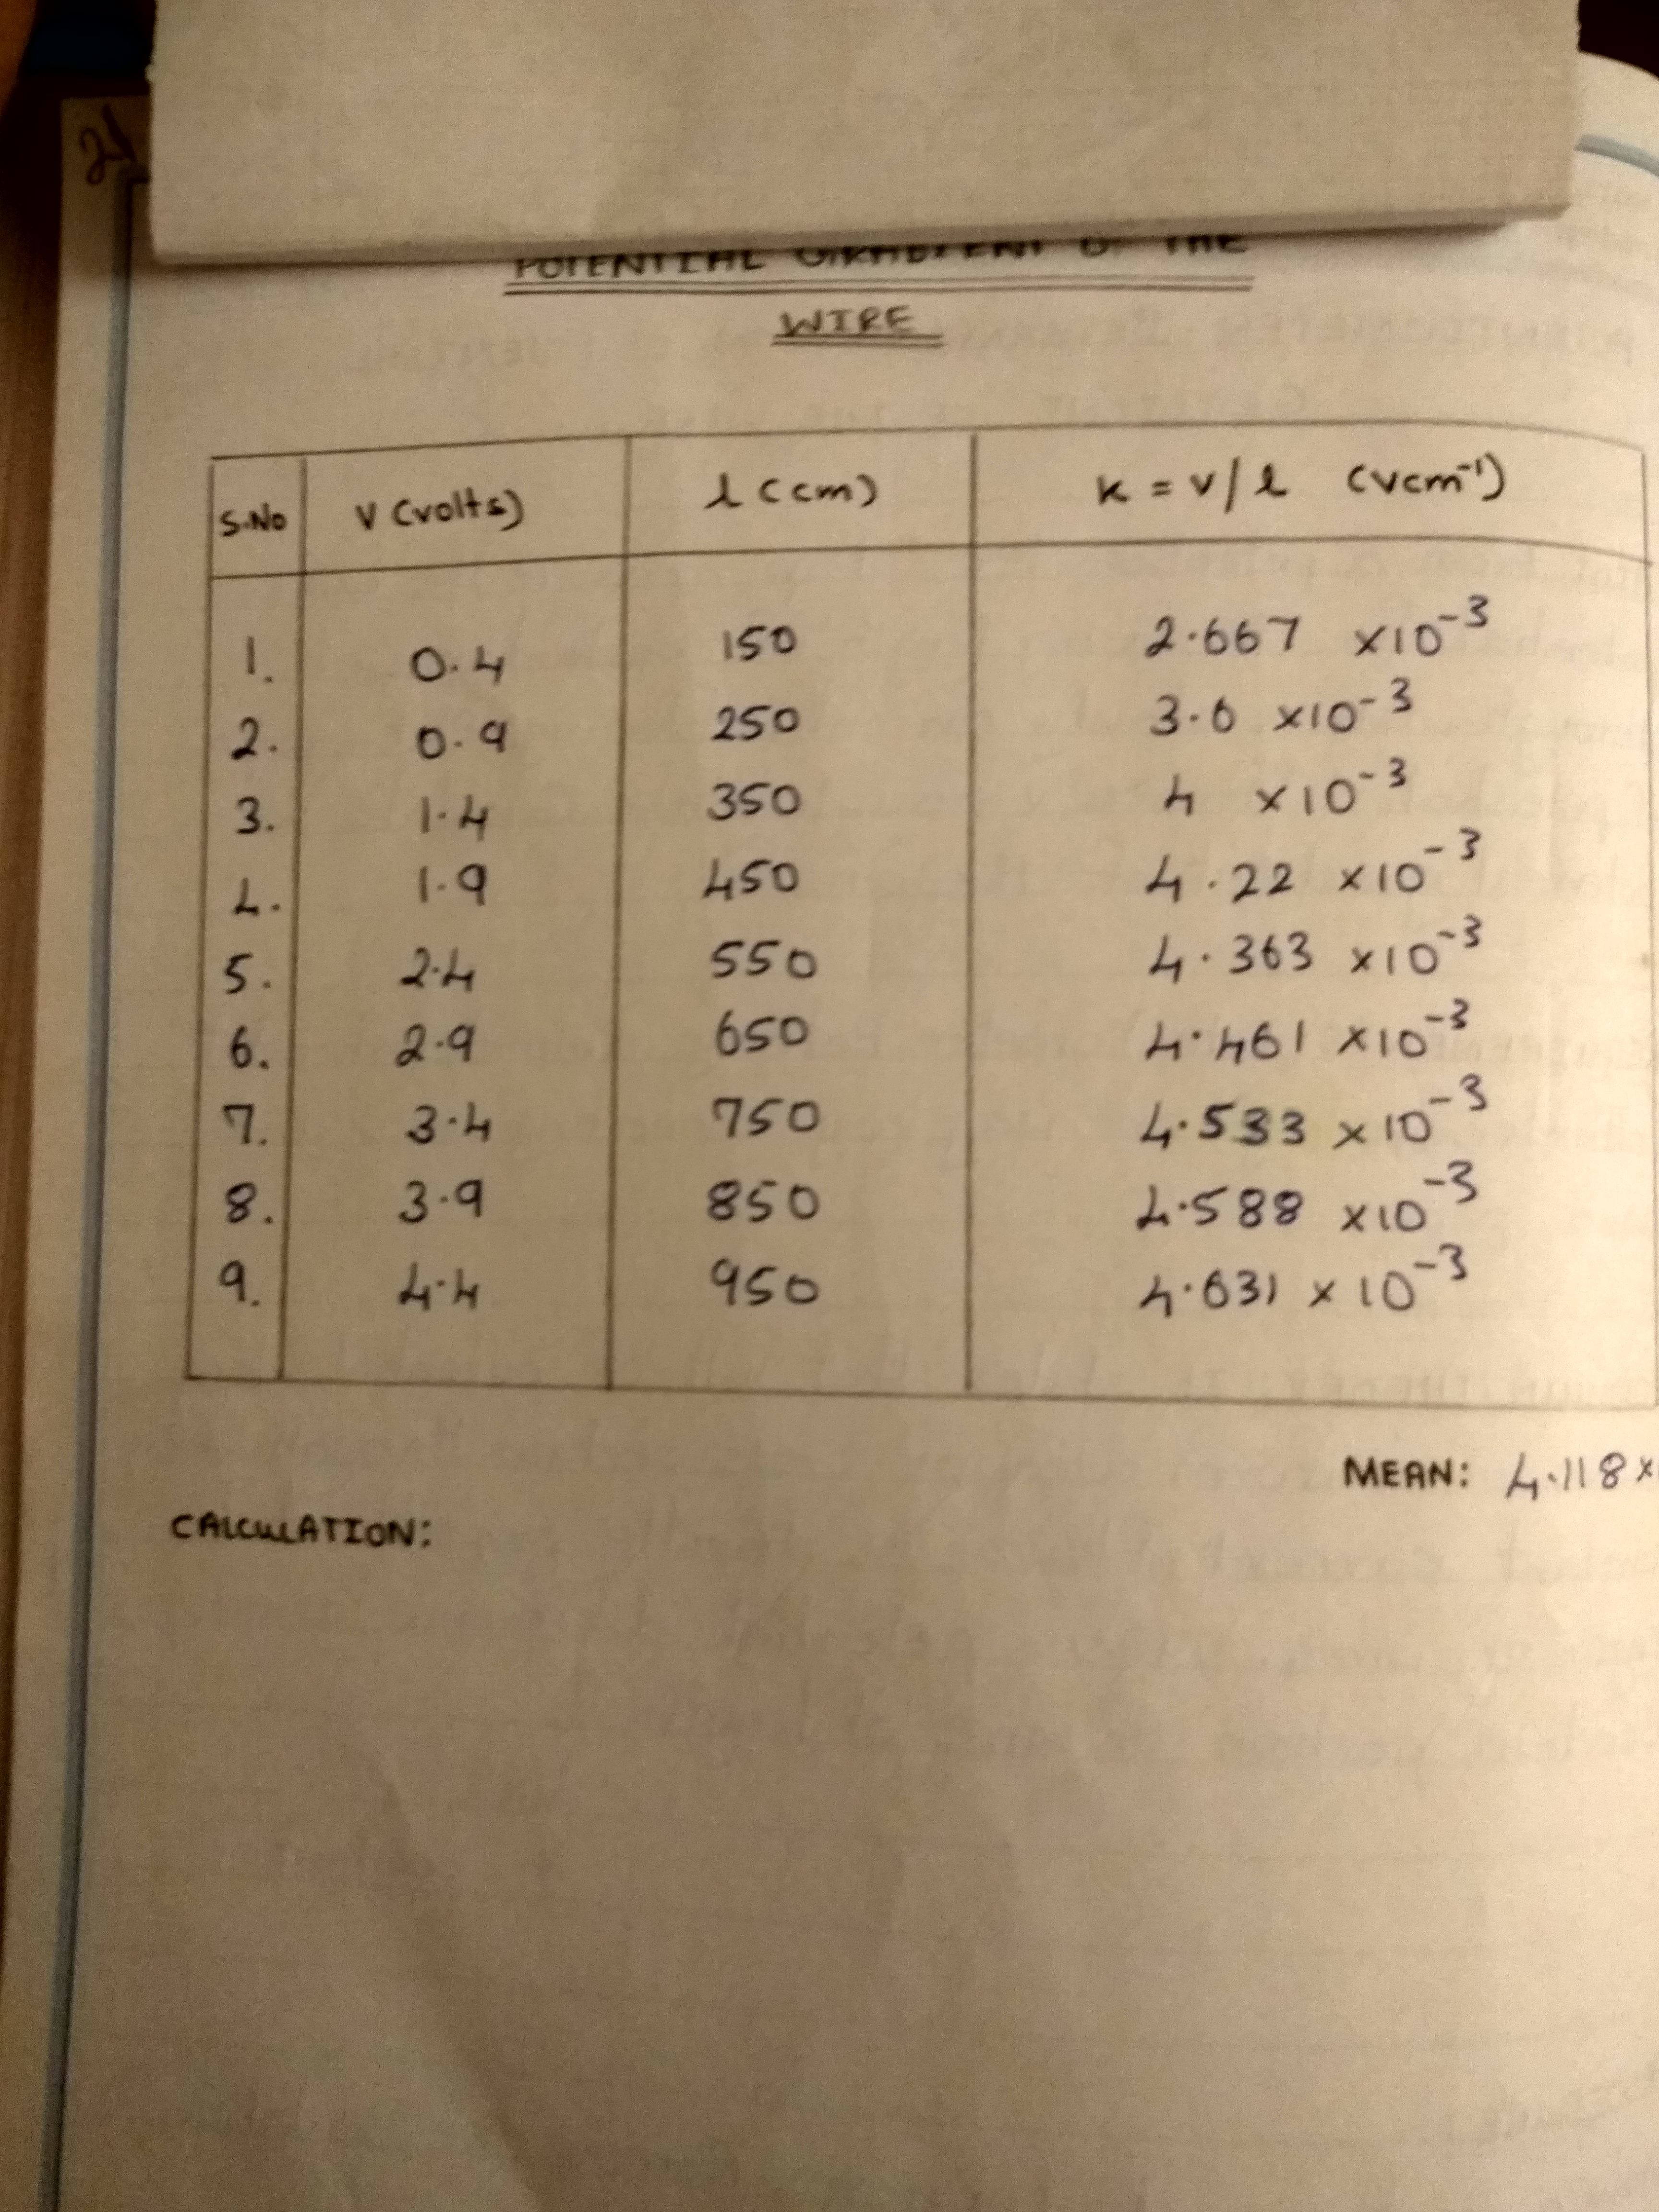 POTENTIAL GRADIENT OF THE
WIRE
S.No V (volts) l (cm) K = V/l (Vcm⁻¹)
1. 0.4 150 2.667 ×10⁻³
2. 0.9 250 3.6 ×10⁻³
3. 1.4 350 4 ×10⁻³
4. 1.9 450 4.22 ×10⁻³
5. 2.4 550 4.363 ×10⁻³
6. 2.9 650 4.461 ×10⁻³
7. 3.4 750 4.533 ×10⁻³
8. 3.9 850 4.588 ×10⁻³
9. 4.4 950 4.631 ×10⁻³
MEAN: 4.118×
CALCULATION: